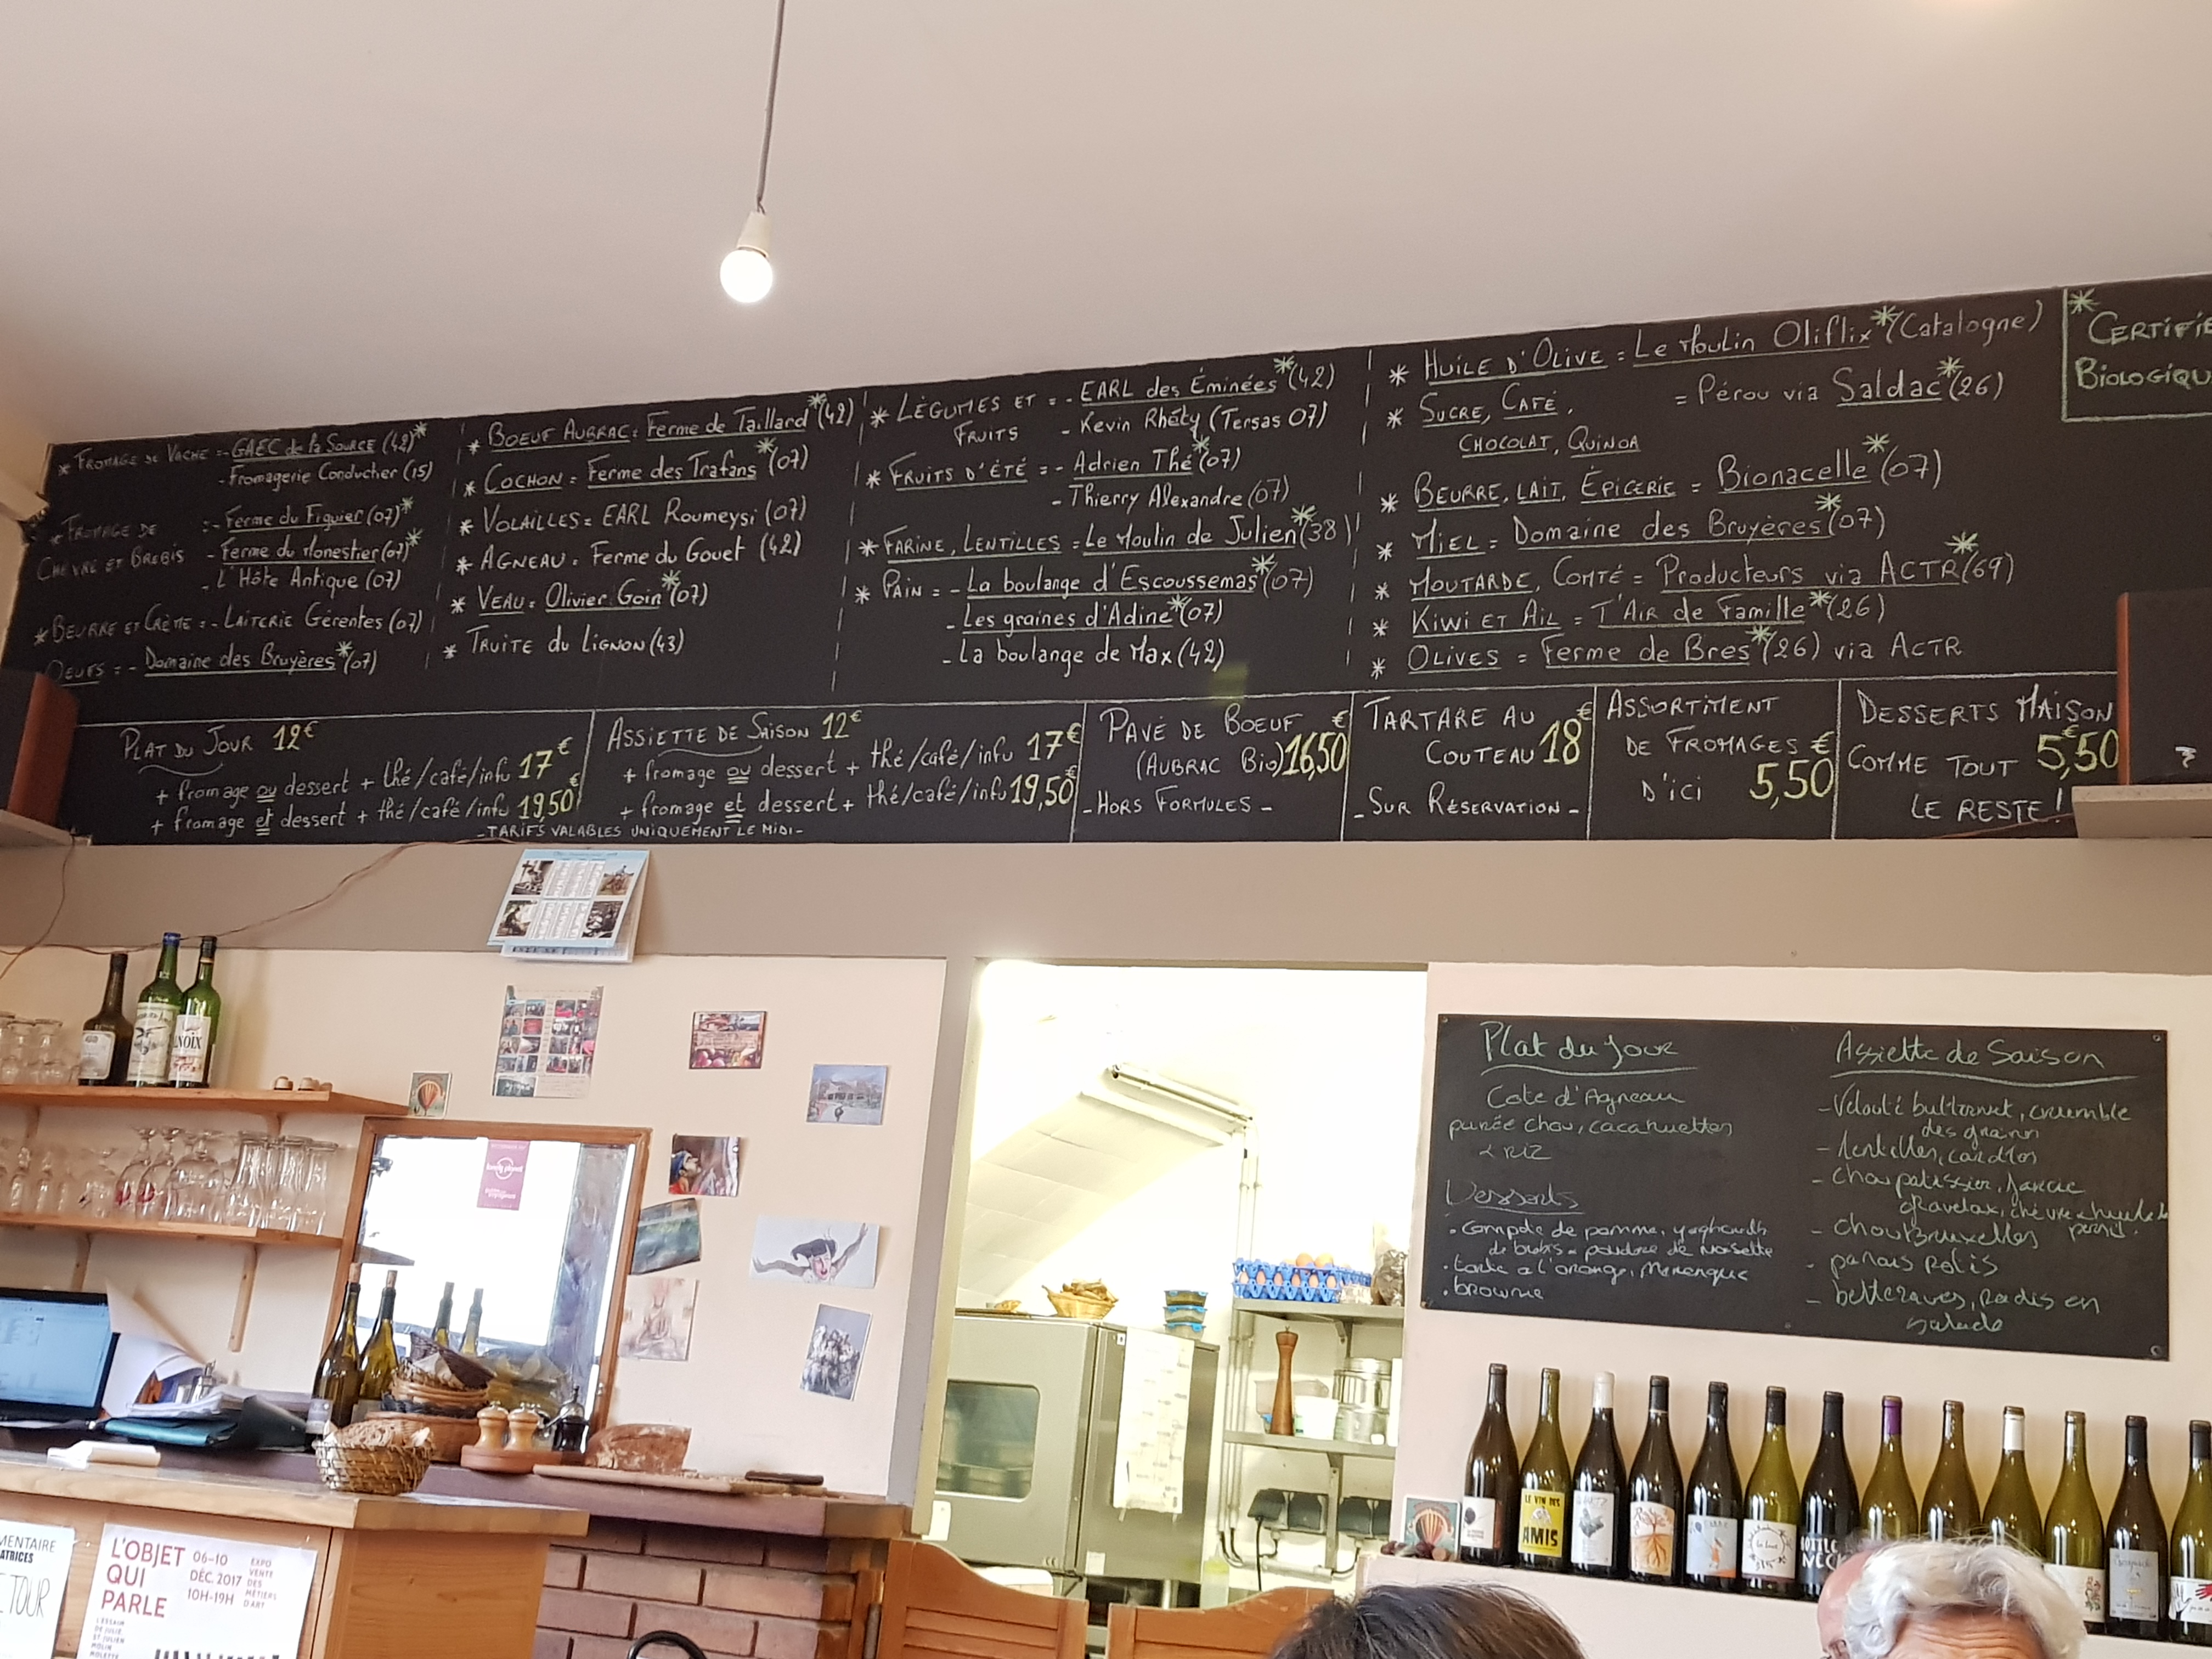 * FROMAGE DE VACHE = - GAEC de la SOURCE (42)*
- Fromagerie Conducher (15)
* FROMAGE DE CHÈVRE ET BREBIS = - Ferme du Figuier (07)*
- Ferme du Monestier (07)*
- L'Hôte Antique (07)
* BEURRE ET CRÈME = - LAITERIE Gérentes (07)
OEUFS = - Domaine des Bruyères* (07)
* BOEUF AUBRAC = Ferme de Taillard* (42)
* COCHON = Ferme des Trafans* (07)
* VOLAILLES = EARL Roumeysi (07)
* AGNEAU = Ferme du Gouet (42)
* VEAU = Olivier Goin* (07)
* TRUITE du LIGNON (43)
* LÉGUMES ET FRUITS = - EARL des Éminées* (42)
- Kevin Rhéty (Tersas 07)
* FRUITS D'ÉTÉ = - Adrien Thé* (07)
- Thierry Alexandre (07)
* FARINE, LENTILLES = Le Moulin de Julien* (38)
* PAIN = - La boulange d'Escoussemas* (07)
- Les graines d'Adine* (07)
- La boulange de Max (42)
* HUILE D'OLIVE = Le Moulin Oliflix* (Catalogne)
* SUCRE, CAFÉ, = Pérou via Saldac* (26)
CHOCOLAT, QUINOA
* BEURRE, LAIT, ÉPICERIE = Bionacelle* (07)
* MIEL = Domaine des Bruyères* (07)
* MOUTARDE, COMTÉ = Producteurs via ACTR* (69)
* KIWI ET AIL = T'AIR de Famille* (26)
* OLIVES = Ferme de Bres* (26) via ACTR
*
CERTIFIÉ
BIOLOGIQU
PLAT DU JOUR 12€
+ fromage ou dessert + thé/café/infu 17€
+ fromage et dessert + thé/café/infu 19,50€
ASSIETTE DE SAISON 12€
+ fromage ou dessert + thé/café/infu 17€
+ fromage et dessert + thé/café/infu 19,50€
- TARIFS VALABLES UNIQUEMENT LE MIDI -
PAVÉ DE BOEUF
(AUBRAC BIO) 16,50€
- HORS FORMULES -
TARTARE AU
COUTEAU 18€
- SUR RÉSERVATION -
ASSORTIMENT
DE FROMAGES
D'ICI 5,50€
DESSERTS MAISON
COMME TOUT 5,50€
LE RESTE !
Plat du Jour
Cote d'Agneau
purée chou, cacahuettes
& RIZ
Desserts
. Compote de pomme, yaghourth
de brebis - poudre de Noisette
. tarte a l'orange, Meringue
. brownie
Assiette de Saison
- Velouté butternut, crumble
des graines
- Lentilles, cardons
- Chou patissier, farcie
gravelax, chèvre
- chou Bruxelles
- panais rotis
- betteraves, radis en
salade
NOIX
lonely planet
LE VIN DES
AMIS
BOTTLE
NECK
MENTAIRE
ATRICES
TOUR
L'OBJET
QUI
PARLE
06–10
DÉC. 2017
10H–19H
EXPO
VENTE
DES
MÉTIERS
D'ART
L'ESSAIM
DE JULIE
ET JULIEN
MOLIN
MOLETTE